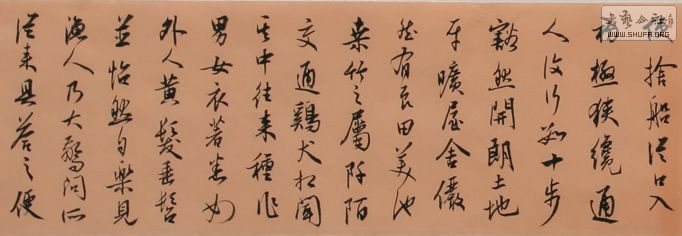 捨船從口入
極狹纔通
人復行數十步
豁然開朗土地
平曠屋舍儼
然有良田美池
桑竹之屬阡陌
交通鷄犬相聞
其中往來種作
男女衣著悉如
外人黃髮垂髫
並怡然自樂見
漁人乃大驚問所
從來具答之便
WWW.SHUFA.ORG